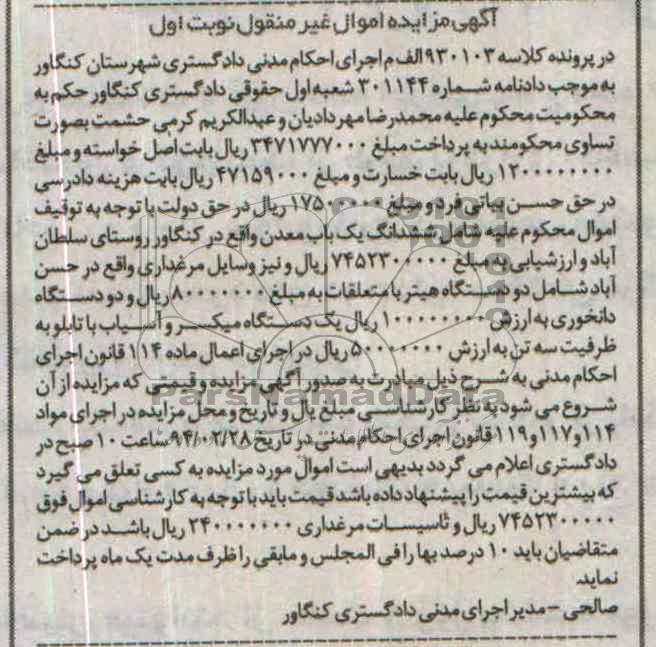 آگهی مزایده اموال غیر منقول نوبت اول
در پرونده کلاسه ۹۳۰۱۰۳ الف م اجرای احکام مدنی دادگستری شهرستان کنگاور
به موجب دادنامه شماره ۳۰۱۱۴۴ شعبه اول حقوقی دادگستری کنگاور حکم به
محکومیت محکوم علیه محمدرضا مهردادیان و عبدالکریم کرمی حشمت بصورت
تساوی محکومند به پرداخت مبلغ ۳۴۷۱۷۷۷۰۰۰ ریال بابت اصل خواسته و مبلغ
۱۲۰۰۰۰۰۰۰۰ ریال بابت خسارت و مبلغ ۴۷۱۵۹۰۰۰ ریال بابت هزینه دادرسی
در حق حسن بیاتی فرد و مبلغ ریال در حق دولت با توجه به توقیف
اموال محکوم علیه شامل ششدانگ یک باب معدن واقع در کنگاور روستای سلطان
آباد و ارزشیابی به مبلغ ۷۴۵۲۳۰۰۰۰۰ ریال و نیز وسایل مرغداری واقع در حسن
آباد شامل دو دستگاه هیتر با متعلقات به مبلغ ۸۰۰۰۰۰۰۰ ریال و دو دستگاه
دانخوری به ارزش ریال یک دستگاه میکسر و آسیاب با تابلو به
ظرفیت سه تن به ارزش ۵۰۰۰۰۰۰۰ ریال در اجرای اعمال ماده ۱۱۴ قانون اجرای
احکام مدنی به شرح ذیل مبادرت به صدور آگهی مزایده و قیمتی که مزایده از آن
شروع می شود به نظر کارشناسی مبلغ یال و تاریخ و محل مزایده در اجرای مواد
۱۱۴ و ۱۱۷ و ۱۱۹ قانون اجرای احکام مدنی در تاریخ ۹۴/۰۲/۲۸ ساعت ۱۰ صبح در
دادگستری اعلام می گردد بدیهی است اموال مورد مزایده به کسی تعلق می گیرد
که بیشترین قیمت را پیشنهاد داده باشد قیمت باید با توجه به کارشناسی اموال فوق
۷۴۵۲۳۰۰۰۰۰ ریال و تاسیسات مرغداری ۲۴۰۰۰۰۰۰۰ ریال باشد در ضمن
متقاضیان باید ۱۰ درصد بها را فی المجلس و مابقی را ظرف مدت یک ماه پرداخت
نماید.
صالحی - مدیر اجرای مدنی دادگستری کنگاور
ParsNamadData